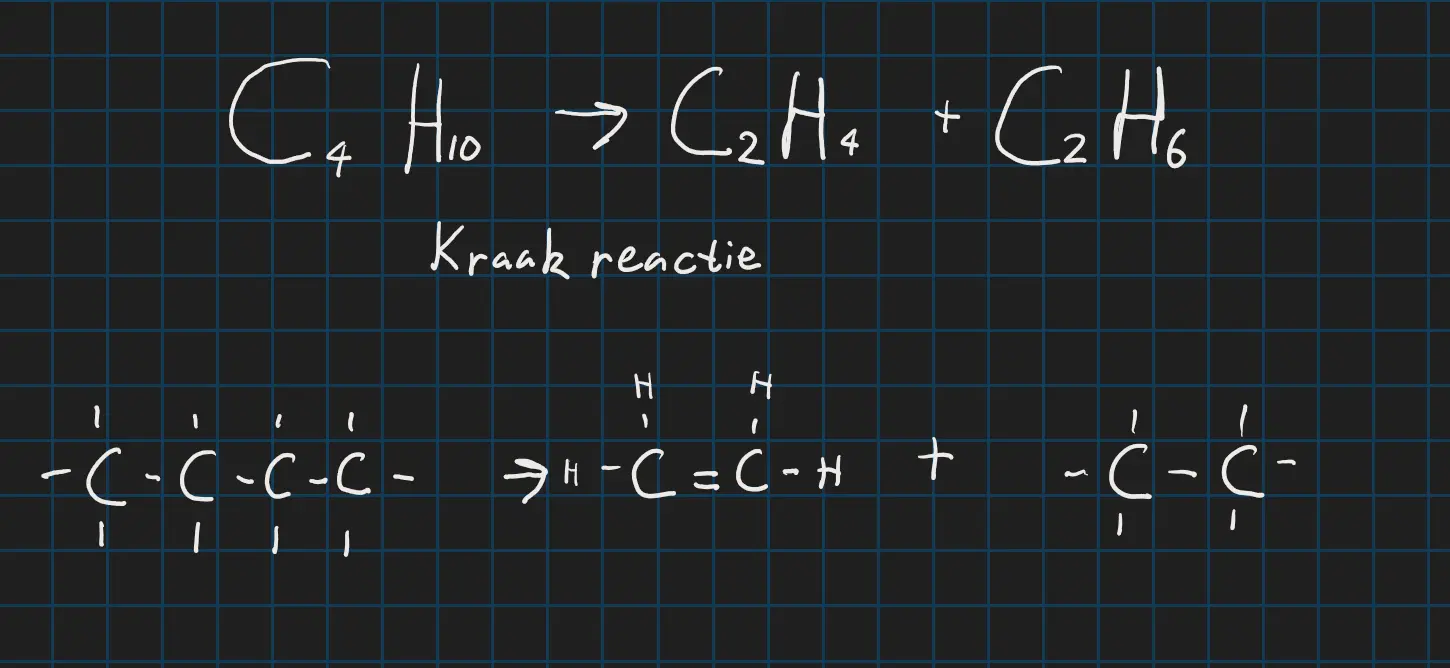 C₄ H₁₀ → C₂H₄ + C₂H₆
Kraak reactie
H H
-C-C-C-C- → H-C=C-H + -C-C-